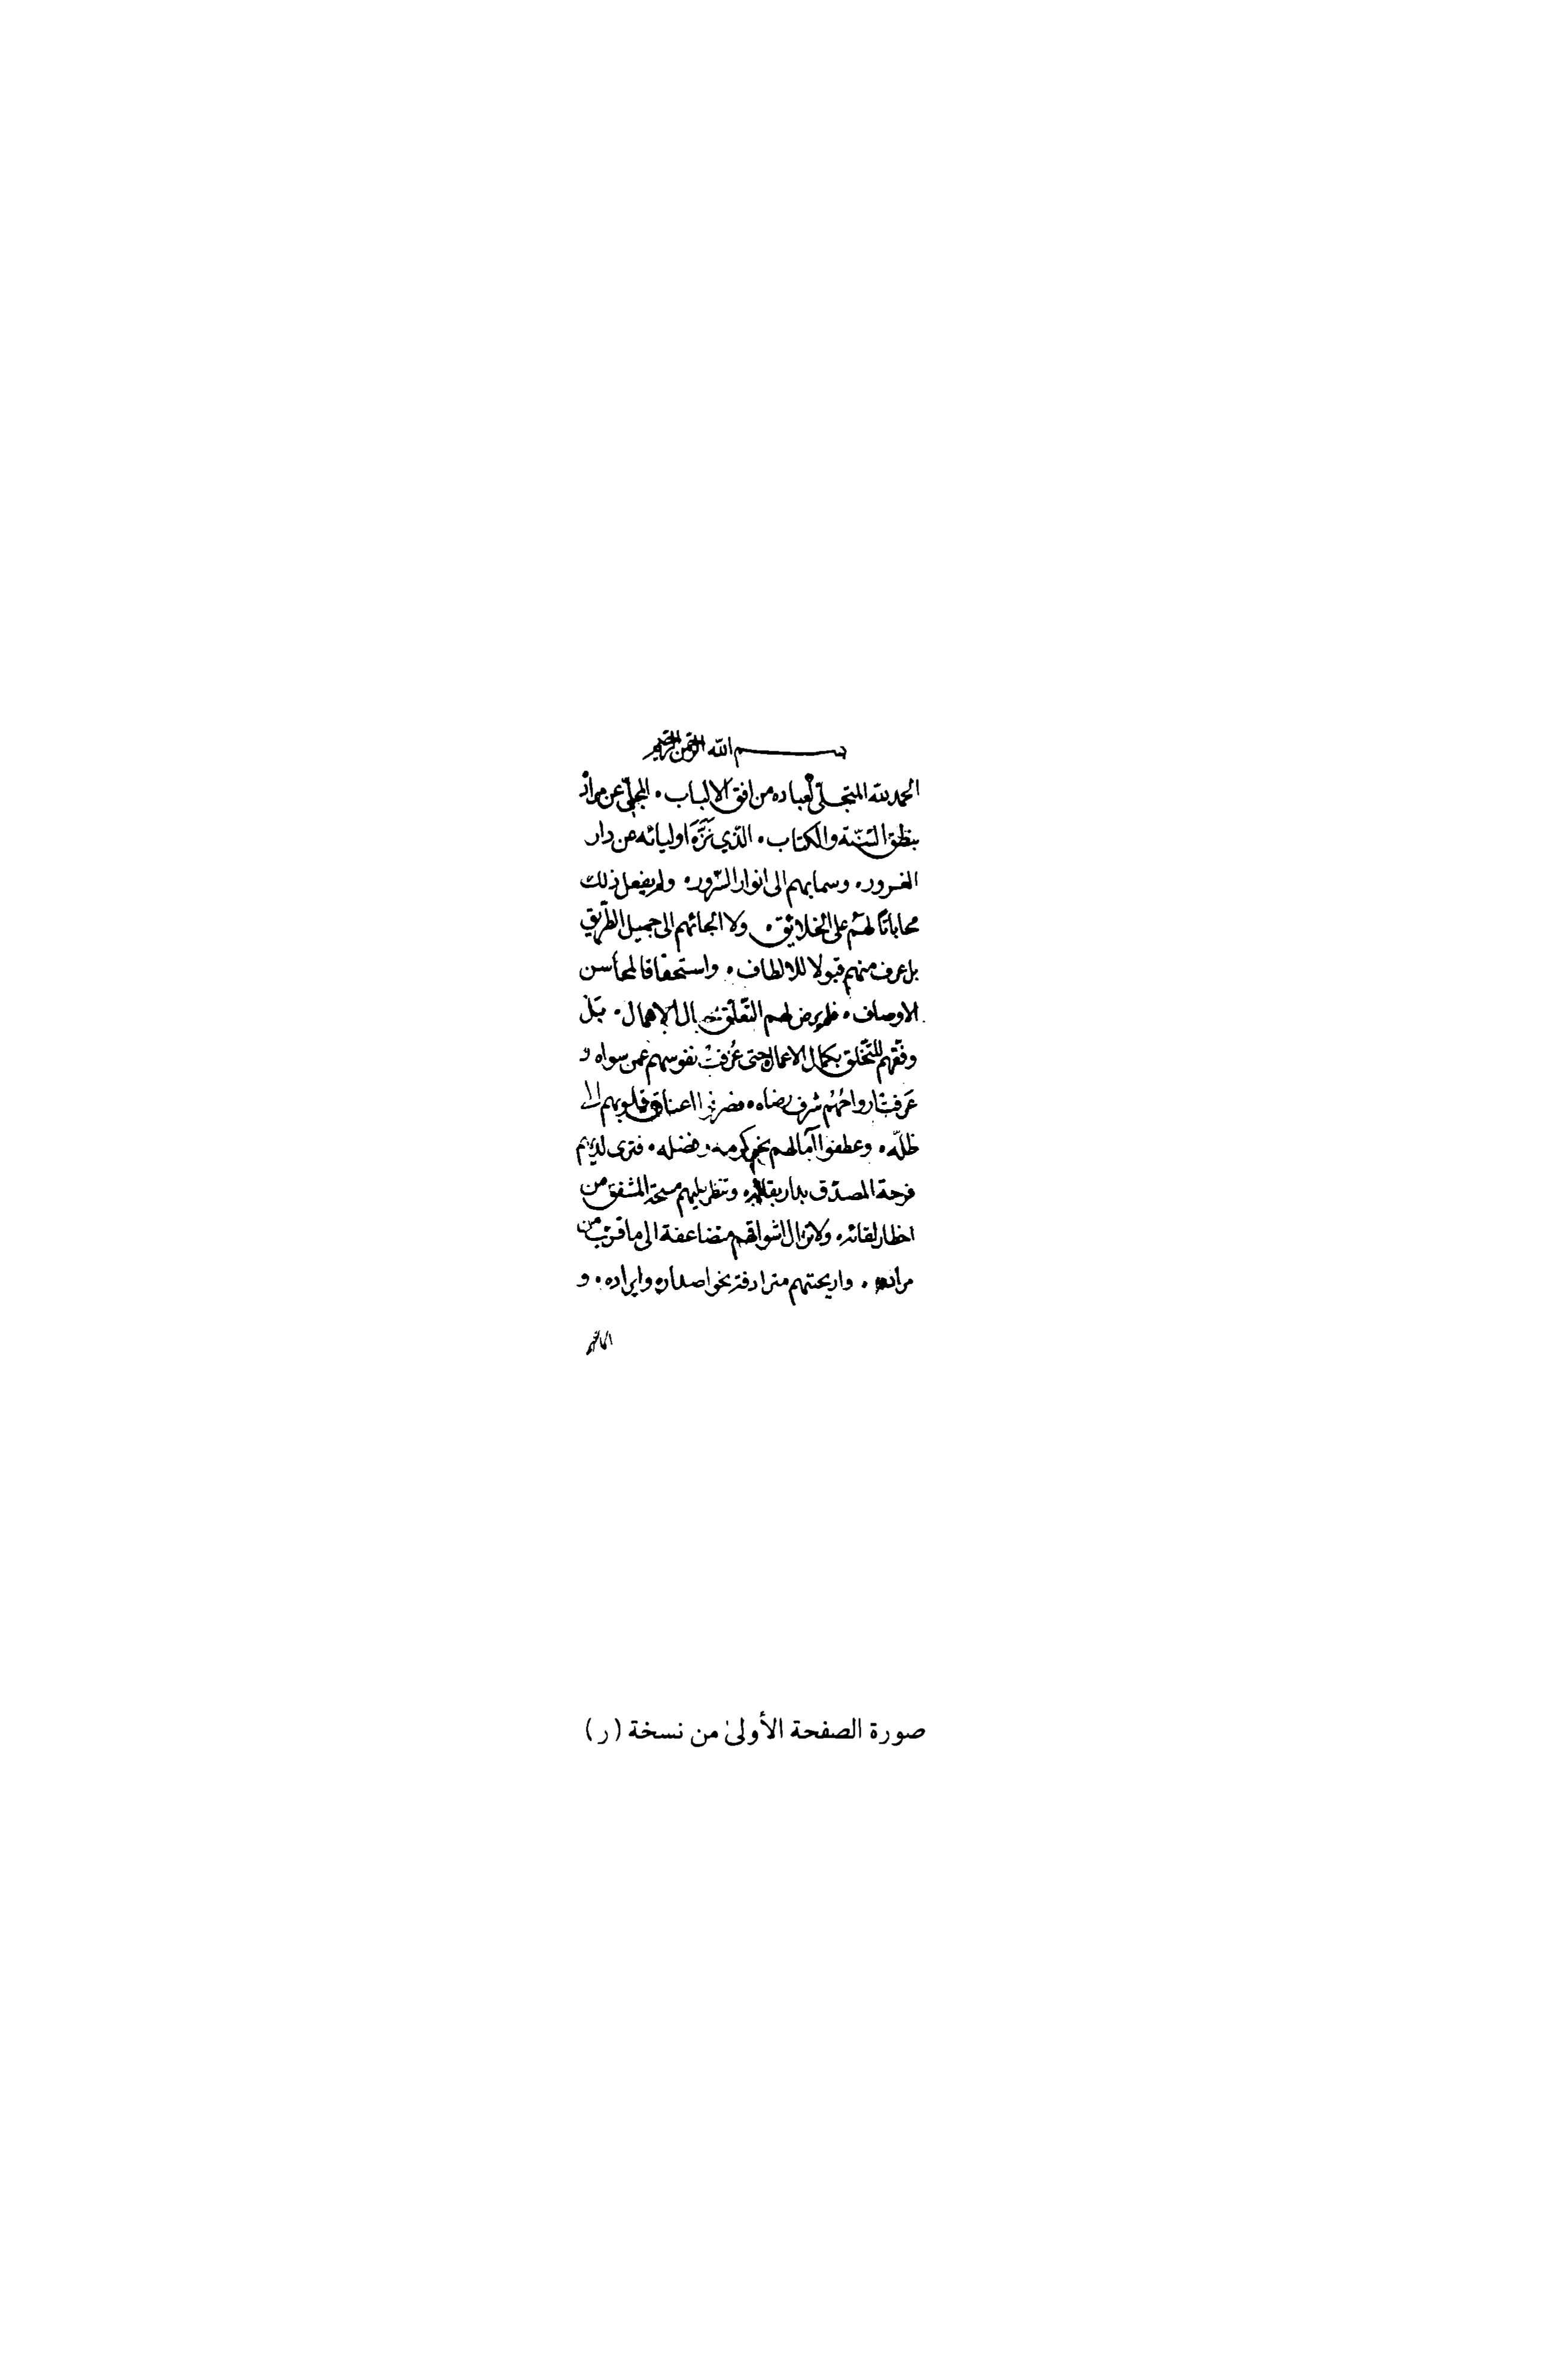 بسم الله الرحمن الرحيم
الحمد لله المتجلّي لعباده من افق الالباب . المجلّي عن مراده
بنطق السّنّة والكتاب . الذّي نَزَّهَ اوليائه عن دار
الغرور . وسمابهم الى انوار السّرور . ولم يفعل ذلك
محاباتاً لهم على الخلائق . ولا الجائهم الى جميل الطّرائق
بل عرف منهم قبولا للالطاف . واستحقاقا لمحاسن
الاوصاف . فلم يرض لهم التّعلّق بحبال الاهمال . بَل
وفّقهم للتّخلق بكمال الاعمال حتى عُزفتْ نفوسهم عمن سواه و
عَرفتْ ارواحُهُم شرف رضاه . فصرفوا اعناق قلوبهم الى
ظلّه . وعطفوا آمالهم نحو كرمه وفضله . فترى لديهم
فرحة المصدّق بدار بقائه . وتنظر عليهم مسحة المشفق من
اخطار لقائه . ولا تزال اشواقهم متضاعفة الى ما قرّب من
مراده . واريحتهم مترادفة نحو اصداره وايراده . و
صورة الصفحة الأولىٰ من نسخة (ر)